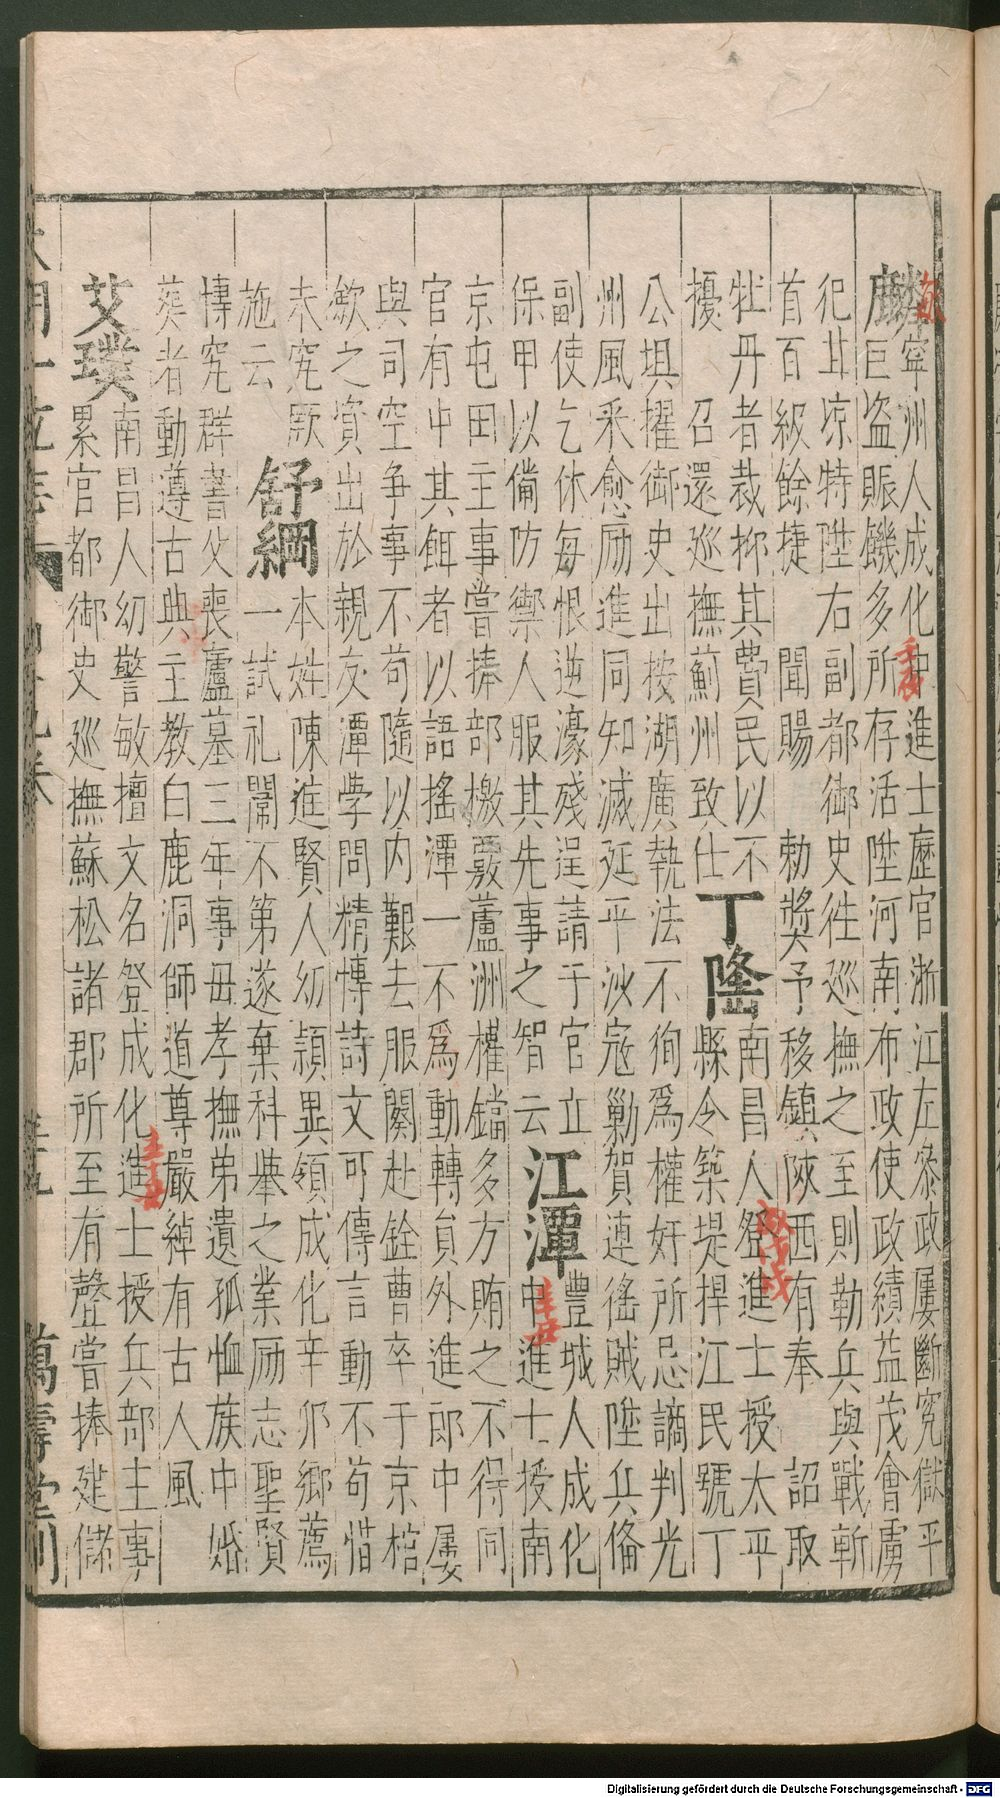 麟
寧州人成化進士歷官浙江左參政屢斷冤獄平
巨盜賑饑多所存活陞河南布政使政績益茂會虜
犯北凉特陞右副都御史徃巡撫之至則勒兵與戰斬
首百級餘捷 聞賜 勅奬予移鎮陜西有奉 詔取
牡丹者裁抑其費民以不
擾 召還巡撫薊州致仕
丁隆
南昌人登進士授太平
縣令築堤捍江民號丁
公埧擢御史出按湖廣執法不徇為權奸所忌謫判光
州風采愈励進同知滅延平沙寇勦賀連徭賊陞兵俻
副使乞休每恨逆濠殘逞請于官立
保甲以備防禦人服其先事之智云
江潭
豐城人成化
中進士授南
京屯田主事嘗捧部檄覈蘆洲權鐺多方賄之不得同
官有中其餌者以語搖潭一不為動轉員外進郎中屢
與司空爭事不苟隨以内艱去服闋赴銓曹卒于京棺
歛之資出於親友潭學問精慱詩文可傳言動不苟惜
未究厥
施云
舒綱
本姓陳進賢人幼頴異領成化辛夘鄉薦
一試礼闈不第遂棄科舉之業励志聖賢
慱究群書父喪廬墓三年事母孝撫弟遺孤恤族中婚
葬者動遵古典主教白鹿洞師道尊嚴綽有古人風
艾璞
南昌人幼警敏擅文名登成化進士授兵部主事
累官都御史巡撫蘇松諸郡所至有聲嘗捧建儲
大明一統志 四十九卷 萬壽堂刊
壬辰
辛丑
辛丑
Digitalisierung gefördert durch die Deutsche Forschungsgemeinschaft - DFG